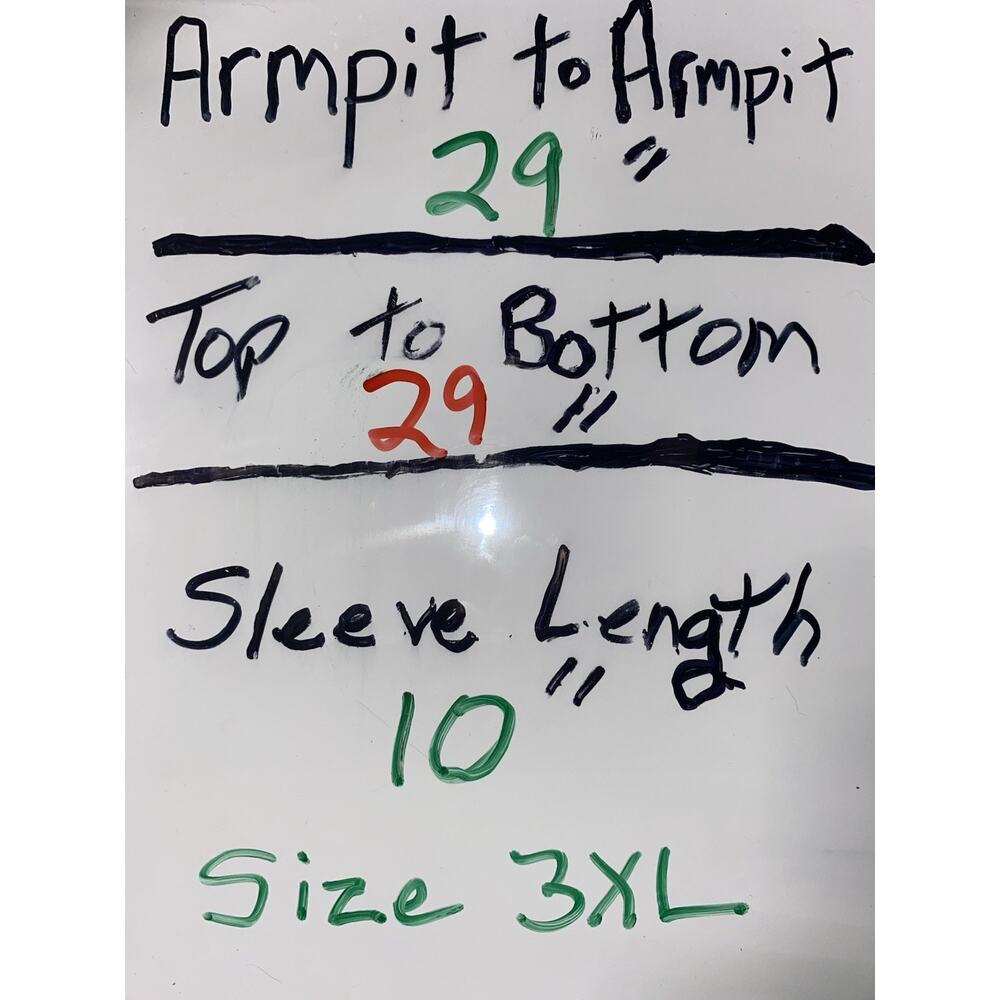 Armpit to Armpit
29"
Top to Bottom
29"
Sleeve Length
10"
Size 3XL